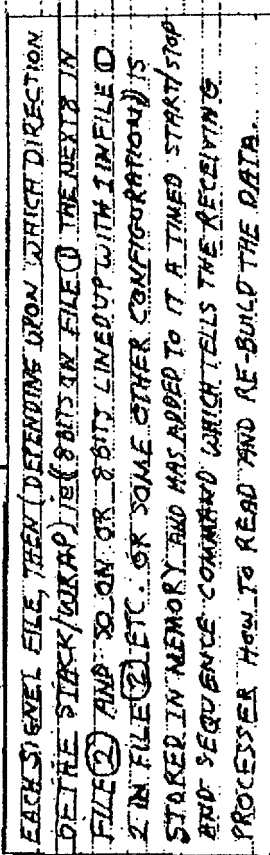 EACH SIGNEL FILE, THEN (DEPENDING UPON WHICH DIRECTION
OF THE STACK/WRAP) ie ((8 BITS IN FILE ① THE NEXT 8 IN
FILE ② AND SO ON OR 8 BITS LINED UP WITH 1 IN FILE ①
2 IN FILE ② ETC. OR SOME OTHER CONFIGURATION)) IS
STORED IN MEMORY AND HAS ADDED TO IT A TIMED START/STOP
AND SEQUENCE COMMAND WHICH TELLS THE RECEIVING
PROCESSER HOW TO READ AND RE-BUILD THE DATA.